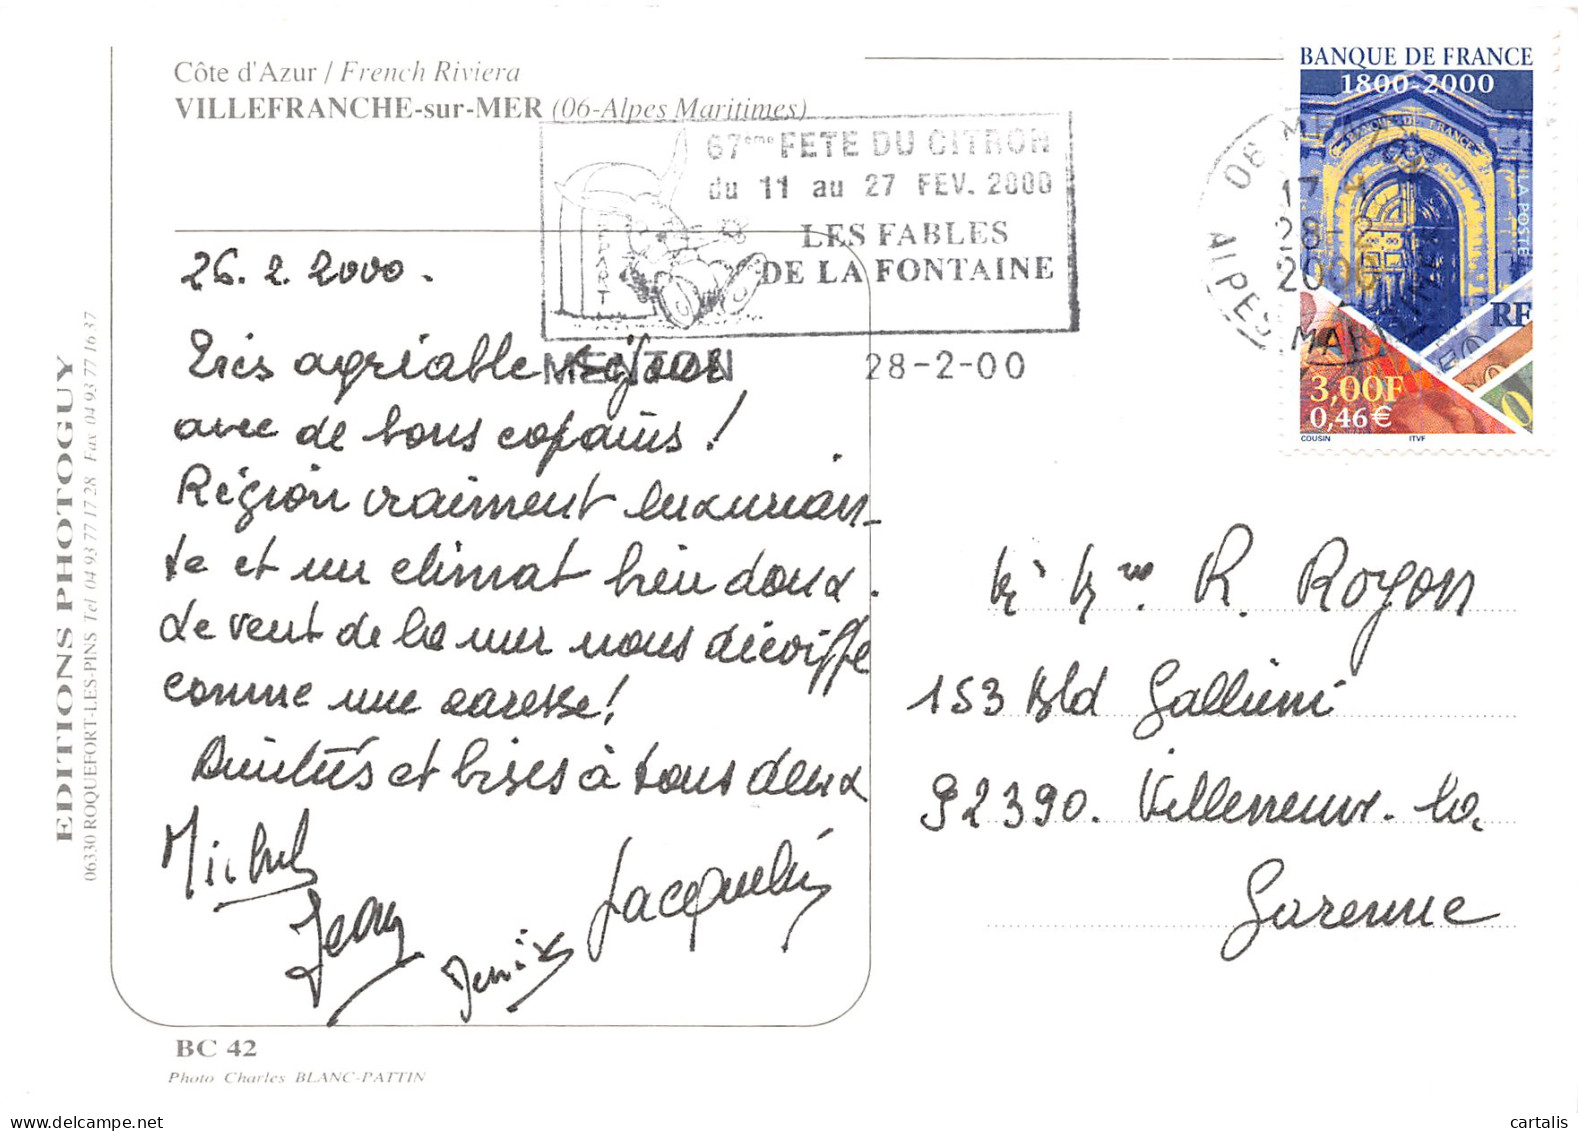 Côte d'Azur / French Riviera
VILLEFRANCHE-sur-MER (06-Alpes Maritimes)
67eme FETE DU CITRON
du 11 au 27 FEV. 2000
LES FABLES
DE LA FONTAINE
MENTON 28-2-00
06 MENTON
17 H
28-2
2000
ALPES MARITIMES
BANQUE DE FRANCE
1800-2000
BANQUE DE FRANCE
LA POSTE
RF
3,00F
0,46€
COUSIN ITVF
26.2.2000.
Très agréable séjour
avec de bons copains !
Région vraiment luxurian-
te et un climat bien doux.
Le vent de la mer nous décoiffe
comme une caresse !
Amitiés et bises à tous deux
Michel
Jean
Denise
Jacqueline
Mr Mme R. Royon
153 Bld Gallieni
92390. Villeneuve-la
Garenne
EDITIONS PHOTOGUY
06330 ROQUEFORT-LES-PINS Tel 04 93 77 17 28 Fax 04 93 77 16 37
BC 42
Photo Charles BLANC-PATTIN
cartalis